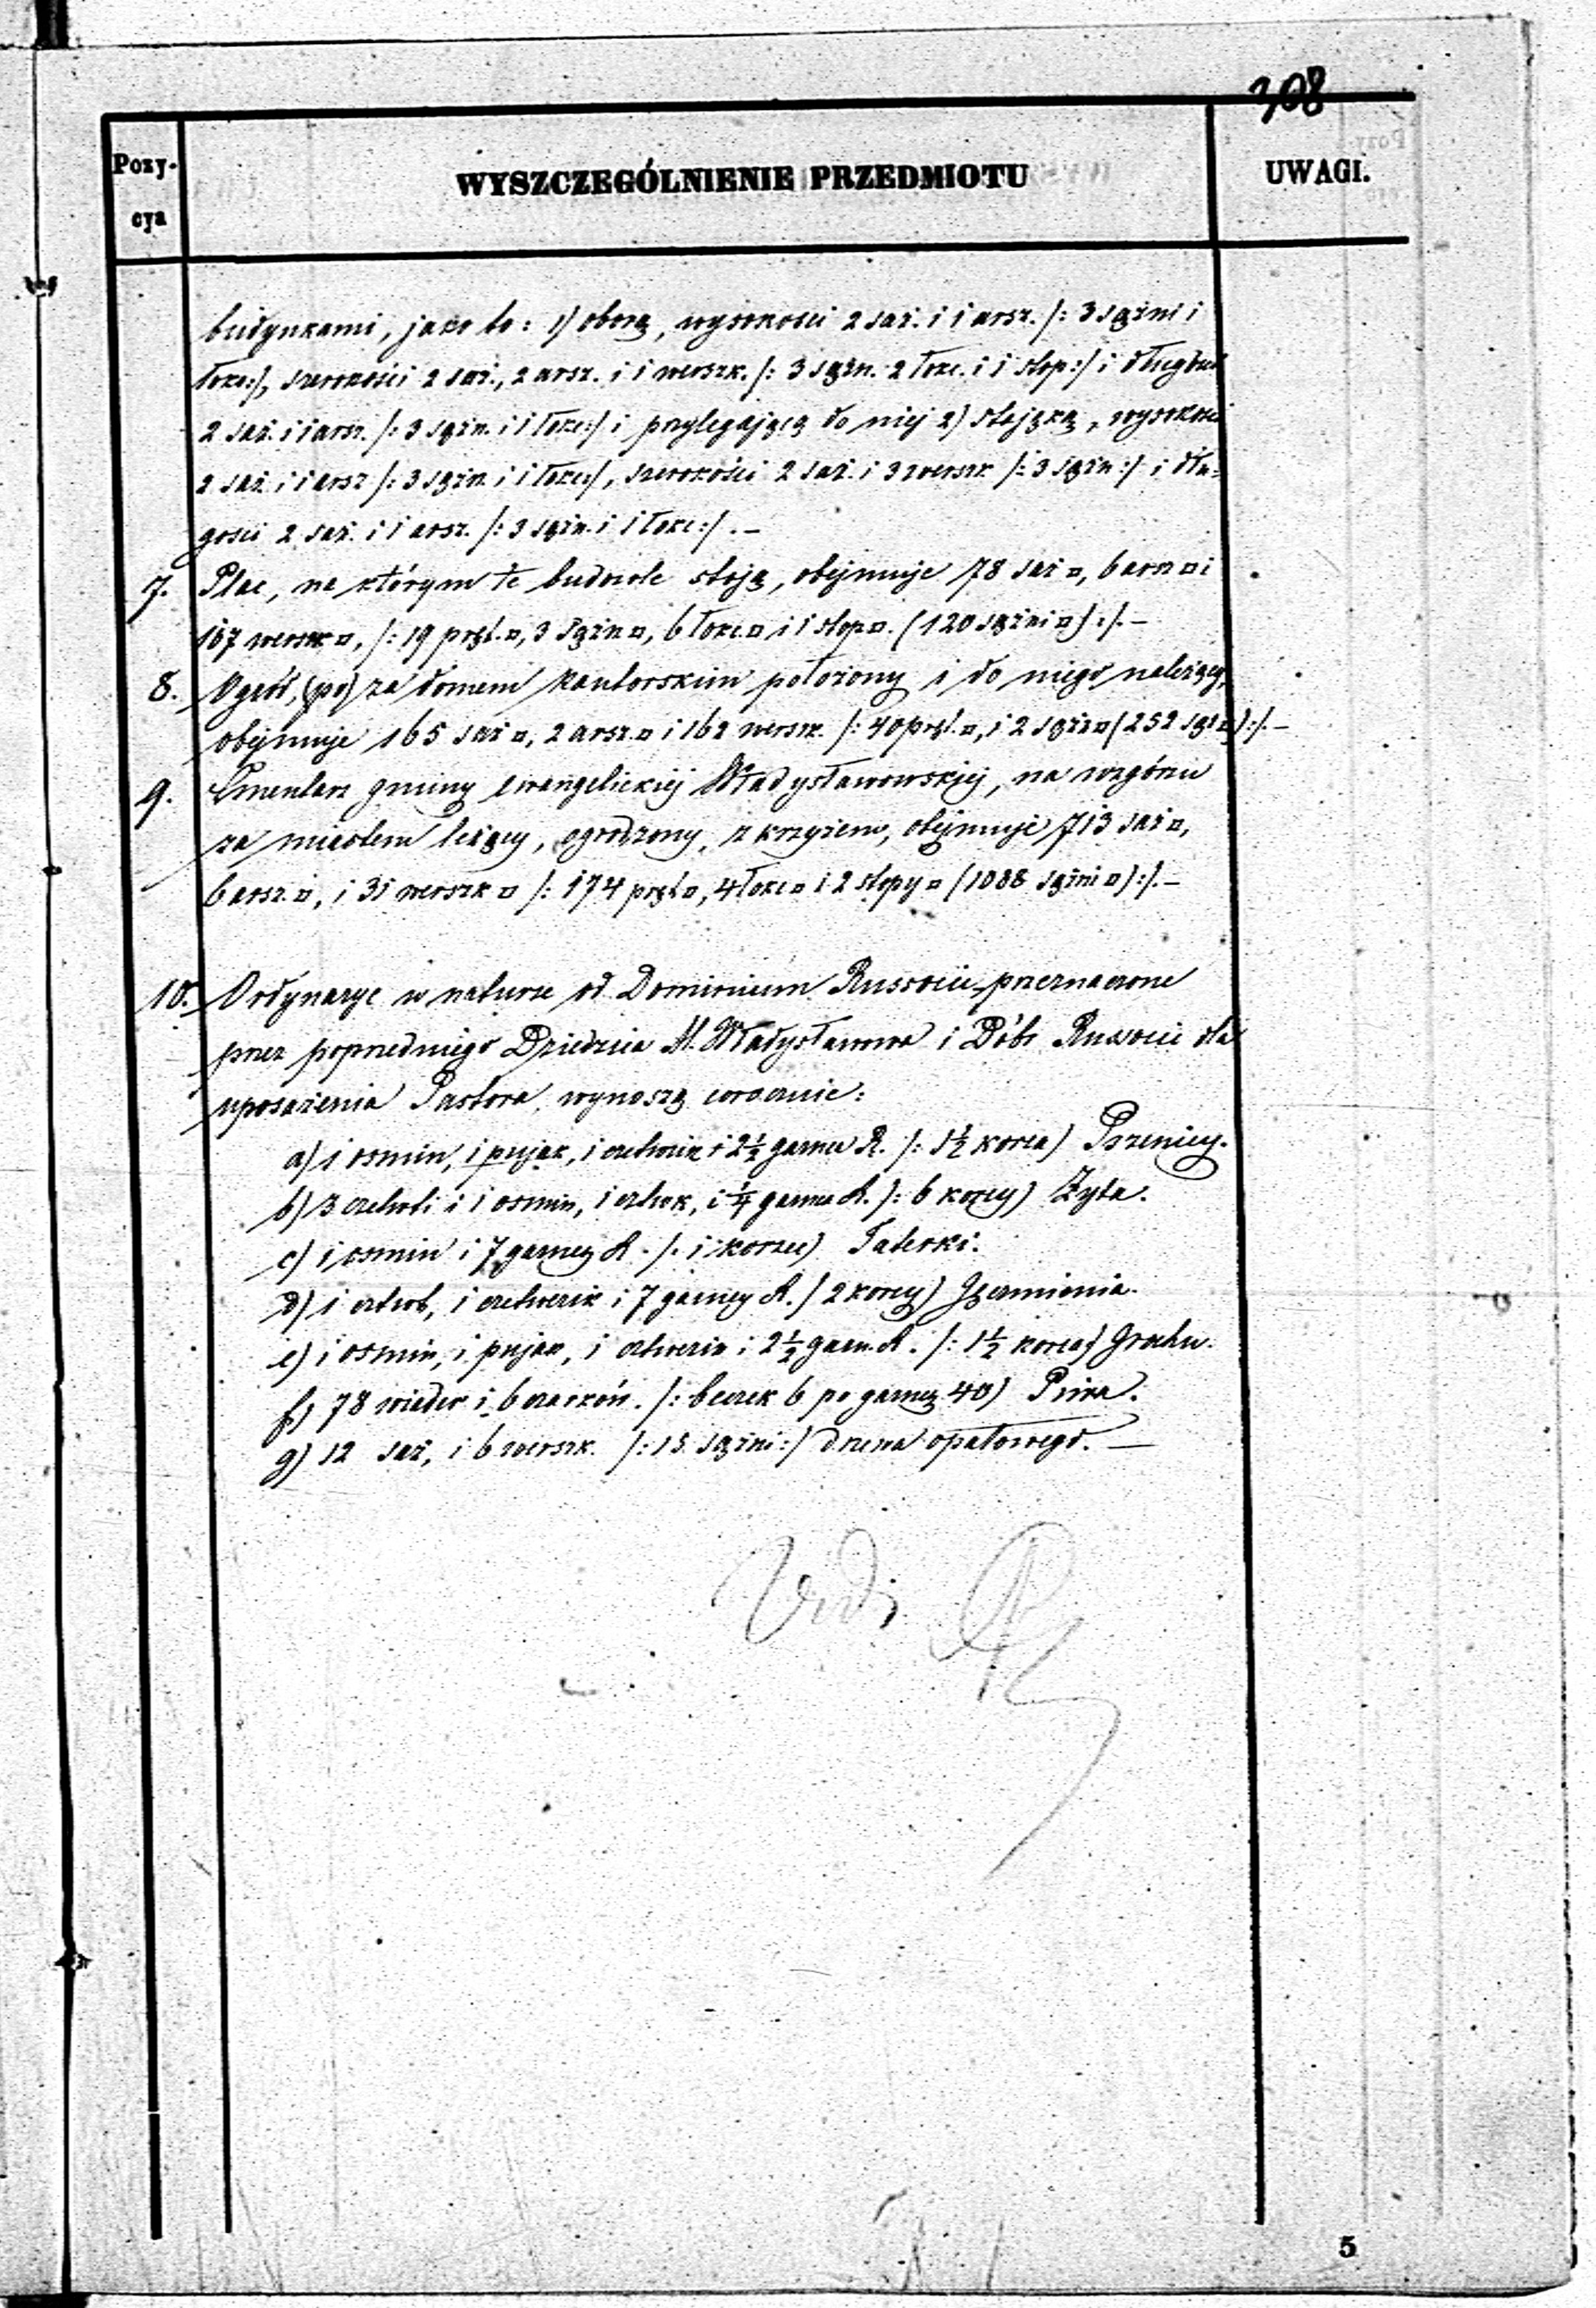 308
Pozy-
cya
WYSZCZEGÓLNIENIE PRZEDMIOTU
UWAGI.
budynkami, jako to: 1) oborą, wysokości 2 saż. i 1 arsz. /: 3 sążni i
łokc:/, szerokości 2 saż., 2 arsz. i 1 werszk. /: 3 sążn. 2 łokc. i 1 stop:/ i długości
2 saż. i 1 arsz. /: 3 sążn. i 1 łokc:/ i przylegającą do niej 2) stajęką, wysokości
2 saż. i 1 arsz /: 3 sążn. i 1 łokc:/, szerokości 2 saż. i 3 werszk /: 3 sążn:/ i dłu-
gości 2 saż. i 1 arsz. /: 3 sążn. i 1 łokc:/. –
7. Plac, na którym te budowle stoją, obejmuje 78 saż □, 6 arsz □ i
167 werszk □, /: 19 pręt. □, 3 sążn □, 6 łokc. □ i 1 stop □. (120 sążni □) :/. –
8. Ogród, (po) za domem kantorskim położony i do niego należący,
obejmuje 165 saż □, 2 arsz. □ i 162 werszk. /: 40 pręt. □, i 2 sążn □ (252 sąż □) :/. –
9. Cmentarz gminy ewangelickiej Władysławowskiej, na wzgórzu
za miastem leżący, ogrodzony, z krzyżem, obejmuje 713 saż □,
6 arsz. □, i 31 werszk □ /: 174 pręt □, 4 łokc □ i 2 stopy □ (1088 sążni □) :/. –
10. Ordynarye w naturze od Dominium Russocic przeznaczone
przez poprzedniego Dziedzica M. Władysławowa i Dóbr Russocic dla
uposażenia Pastora, wynoszą corocznie:
a) 1 osmin, 1 pujak, 1 czetwerik i 2½ garnca R. /: 1½ korca) Pszenicy.
b) 3 czetwoti i 1 osmin, 1 cztwk, i ¼ garnca R. /: 6 korcy) Żyta.
c) 1 osmin i 7 garncy R. /: 1 korzec) Taterki.
d) 1 cztwot, 1 czetwerik i 7 garncy R. / 2 korcy) Jęczmienia.
e) 1 osmin, 1 pujak, 1 cztwerik i 2½ garn. R. /: 1½ korca) Grochu.
f) 78 wieder i 6 czarkóń. /: beczek 6 po garncy 40) Piwa.
g) 12 saż, i 6 werszk. /: 15. sążni :/ drzewa opałowego. —
Vidi
5